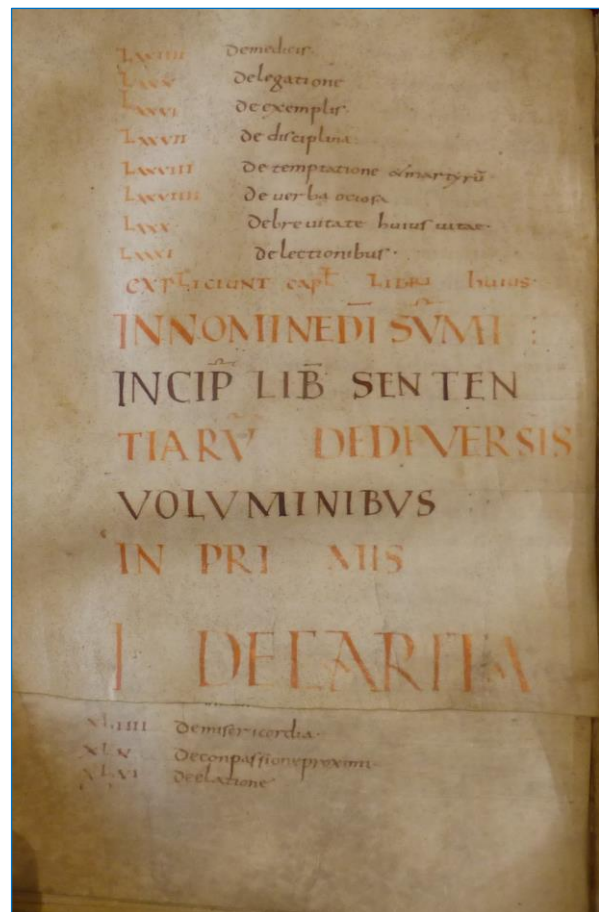 LXXIIII De medicis.
LXXV De legatione
LXXVI De exemplis.
LXXVII De disciplina.
LXXVIII De temptatione & martyrū
LXXVIIII De verba ociosa
LXXX De breuitate huius uitae.
LXXXI De lectionibus.
EXPLICIUNT capt̄ LIBRI huius.
IN NOMINE DĪ SUMI
INCIP̄ LIB̄ SENTEN
TIARV̄ DE DIVERSIS
VOLVMINIBVS
IN PRI MIS
I DE CARITA
XLIIII De misericordia.
XLV De conpassione proximi.
XLVI De elatione